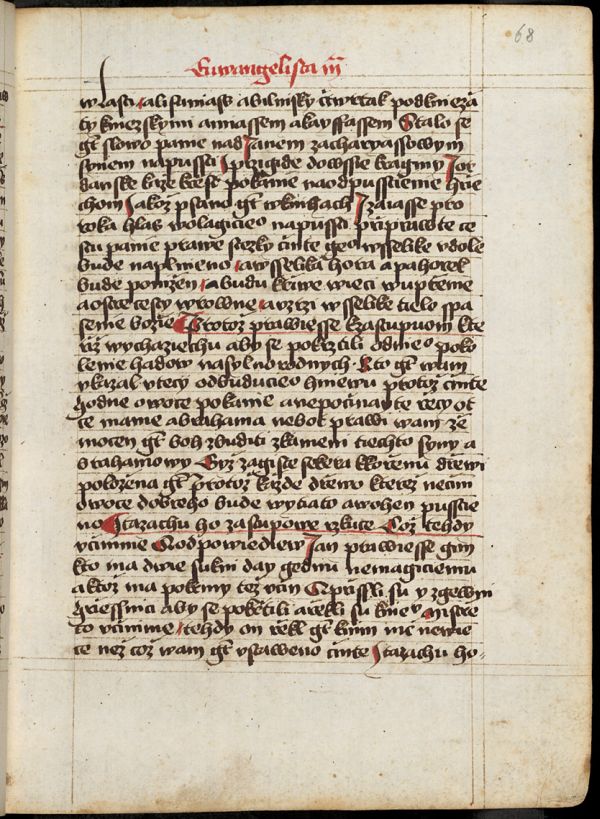 68
Euwangelista iij
wlasti a lisaniass abilinsky cztwrtak podkniezA
ty kniezskymi annassem a kayffassem Stalo se
gt slowo panie nad Janem zacharyassowym
synem napussti I przigide do wssie kraginy Jor
danske kaze krzest pokanie na odpusstienie hrie
chom Jakoz psano gt wknihach Izaiasse pro
roka hlas wolagicieo napussti priprawte ce
stu panie prawe stezky cinte geo wsselike vdole
bude naplneno a wsselika hora a pahorek
bude ponizen a budu kriwe wieci wuprieme
a ostre cesty wrowne a vzrzi wsselike tielo spa
senie bozie Protoz prawiesse kzastupuom kte
riz wychaziechu aby se pokrztili odnieo poko
lenie hadow nasylnorodnych Kto gt wam
vkazal vtecy odbuducieo hniewu protoz cinte
hodne owoce pokanie a nepocinayte recy ot
ce mame abrahama neboť prawi wam ze
mocen gt boh zbuditi zkameni tiechto syny a
brahamowy Gyz zagiste sekera kkorenu drewi
polozena gt Protoz kazde drewo kterez necini
owoce dobreho bude wytiato a wohen pusstie
no Itazachu ho zastupowe rzkuce Coz tehdy
vcinime Codpowiediew Jan prawiesse gim
kto ma dwie sukni day gednu nemagiciemu
a ktoz ma pokrmy tez vcin Cprissli su y zgewni
hriessnici aby se pokrtili a rekli su kniev mistre
co vcinime tehdy on rekl gt knim nic newie
ce nez coz wam gt vstaweno cinte Itazachu ho